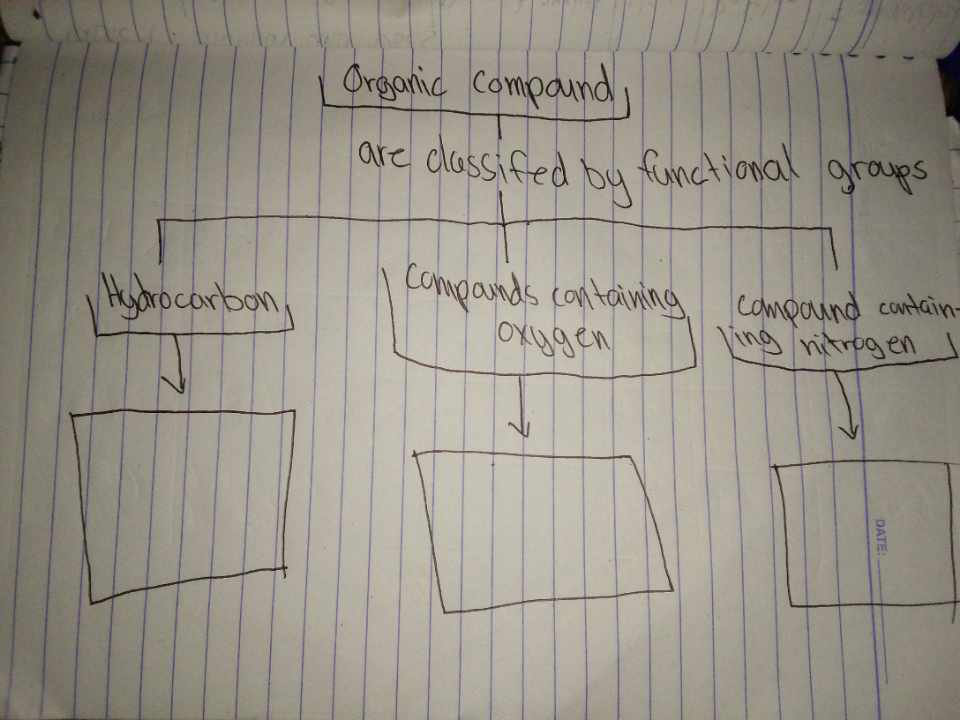 Organic compound
are classifed by functional groups
Hydrocarbon
compounds containing
oxygen
compound contain-
ing nitrogen
DATE: